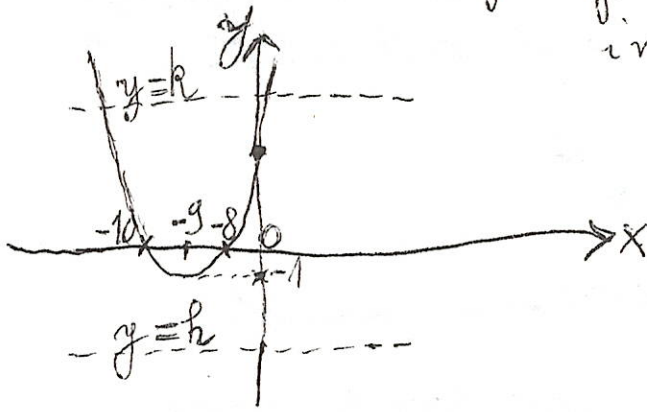 y
y≡k
-10 -9 -8 0
x
-1
y≡h